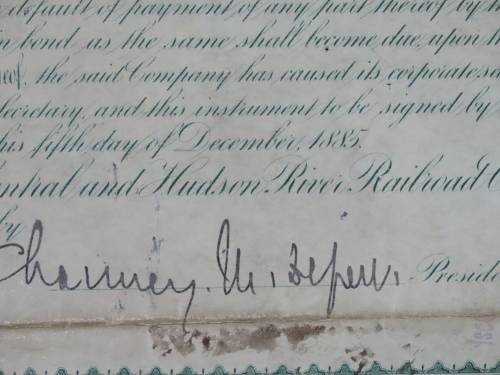 default of payment of any part thereof by th
in bond as the same shall become due, upon t
eof, the said Company has caused its corporate se
Secretary, and this instrument to be signed by
his fifth day of December, 1885.
entral and Hudson River Railroad C
by
Chauncey M. Depew. Preside